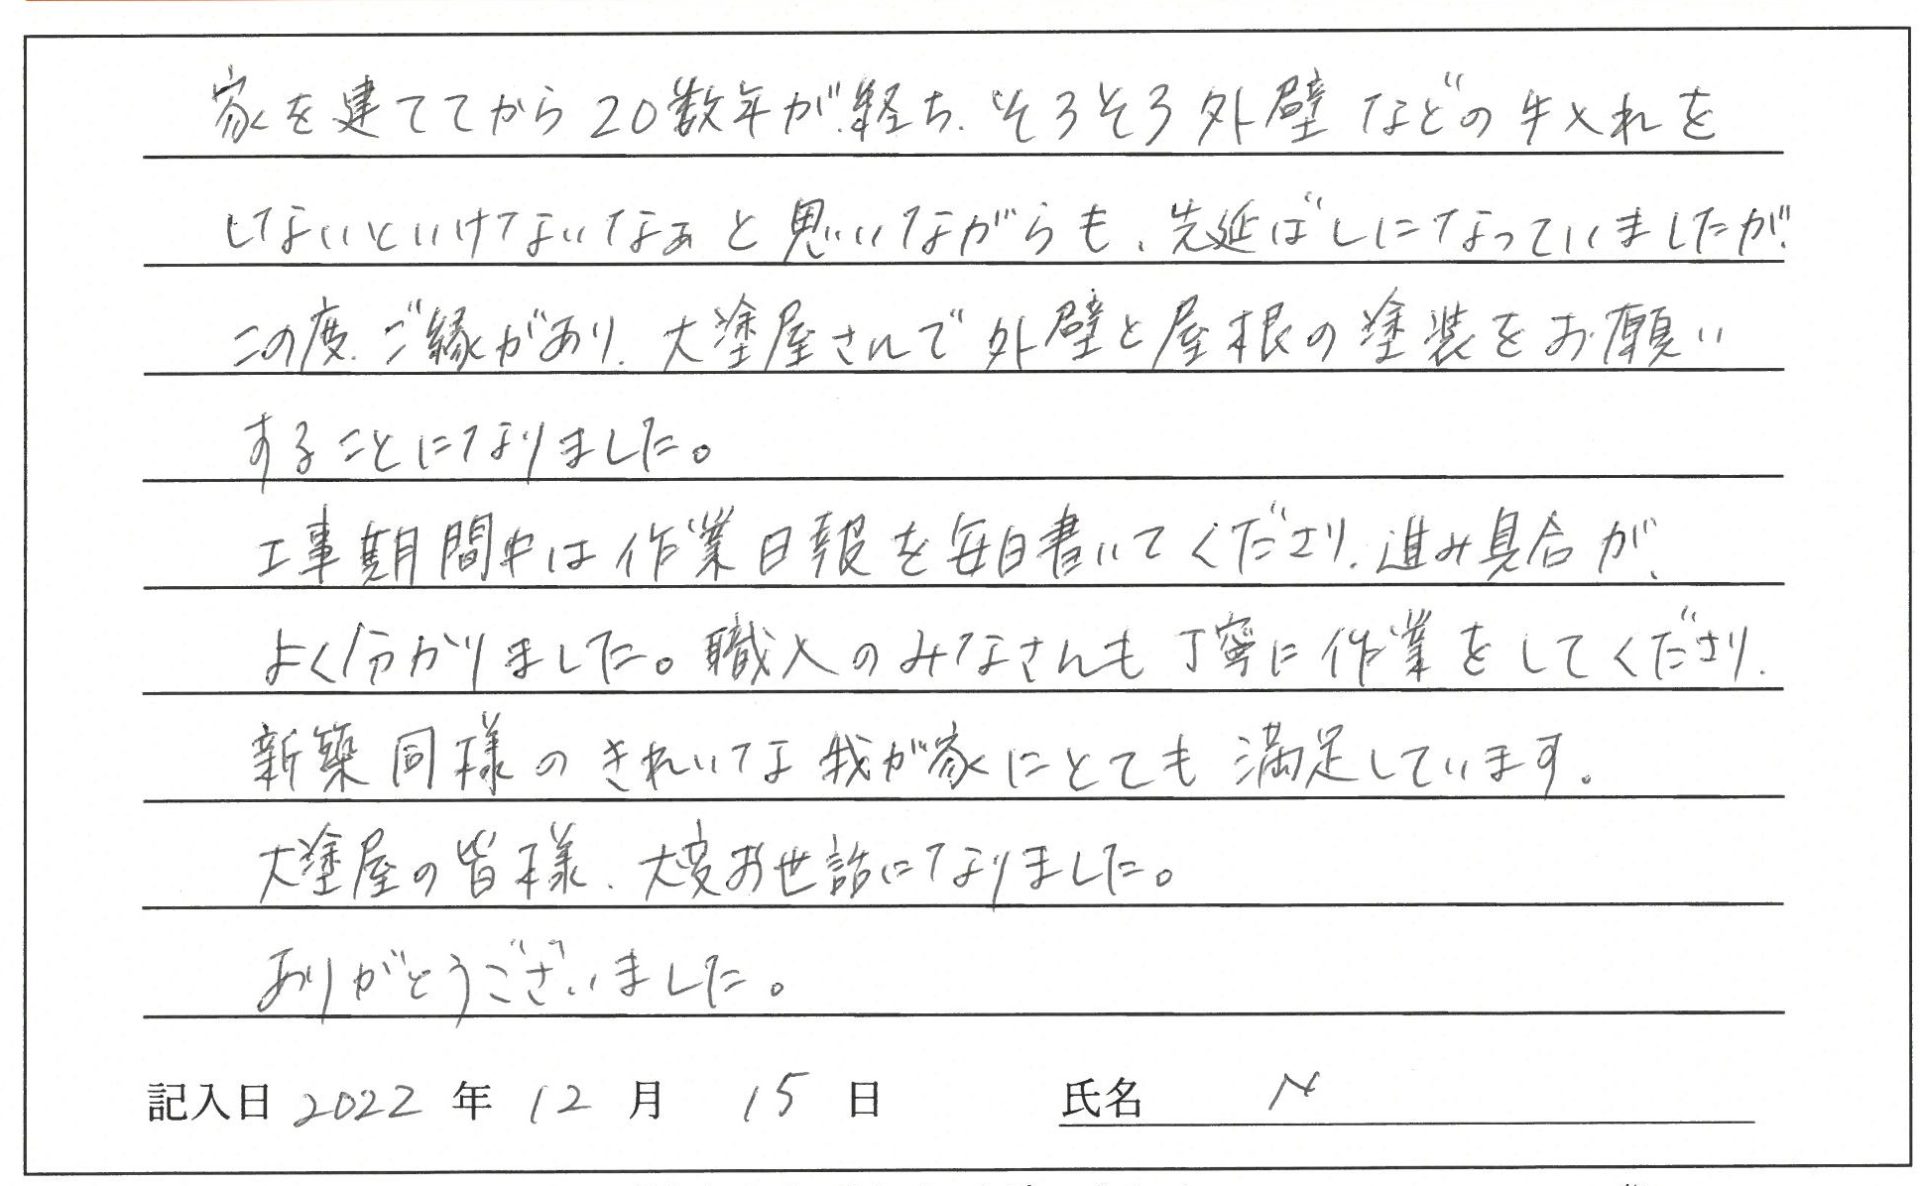 家を建ててから20数年が経ち、そろそろ外壁などの手入れを
しないといけないなぁと思いながらも、先延ばしになっていましたが
この度、ご縁があり、大塗屋さんで外壁と屋根の塗装をお願い
することになりました。
工事期間中は作業日報を毎日書いてくださり、進み具合が、
よく分かりました。職人のみなさんも丁寧に作業をしてくださり、
新築同様のきれいな我が家にとても満足しています。
大塗屋の皆様、大変お世話になりました。
ありがとうございました。
記入日 2022 年 12 月 15 日 氏名 N